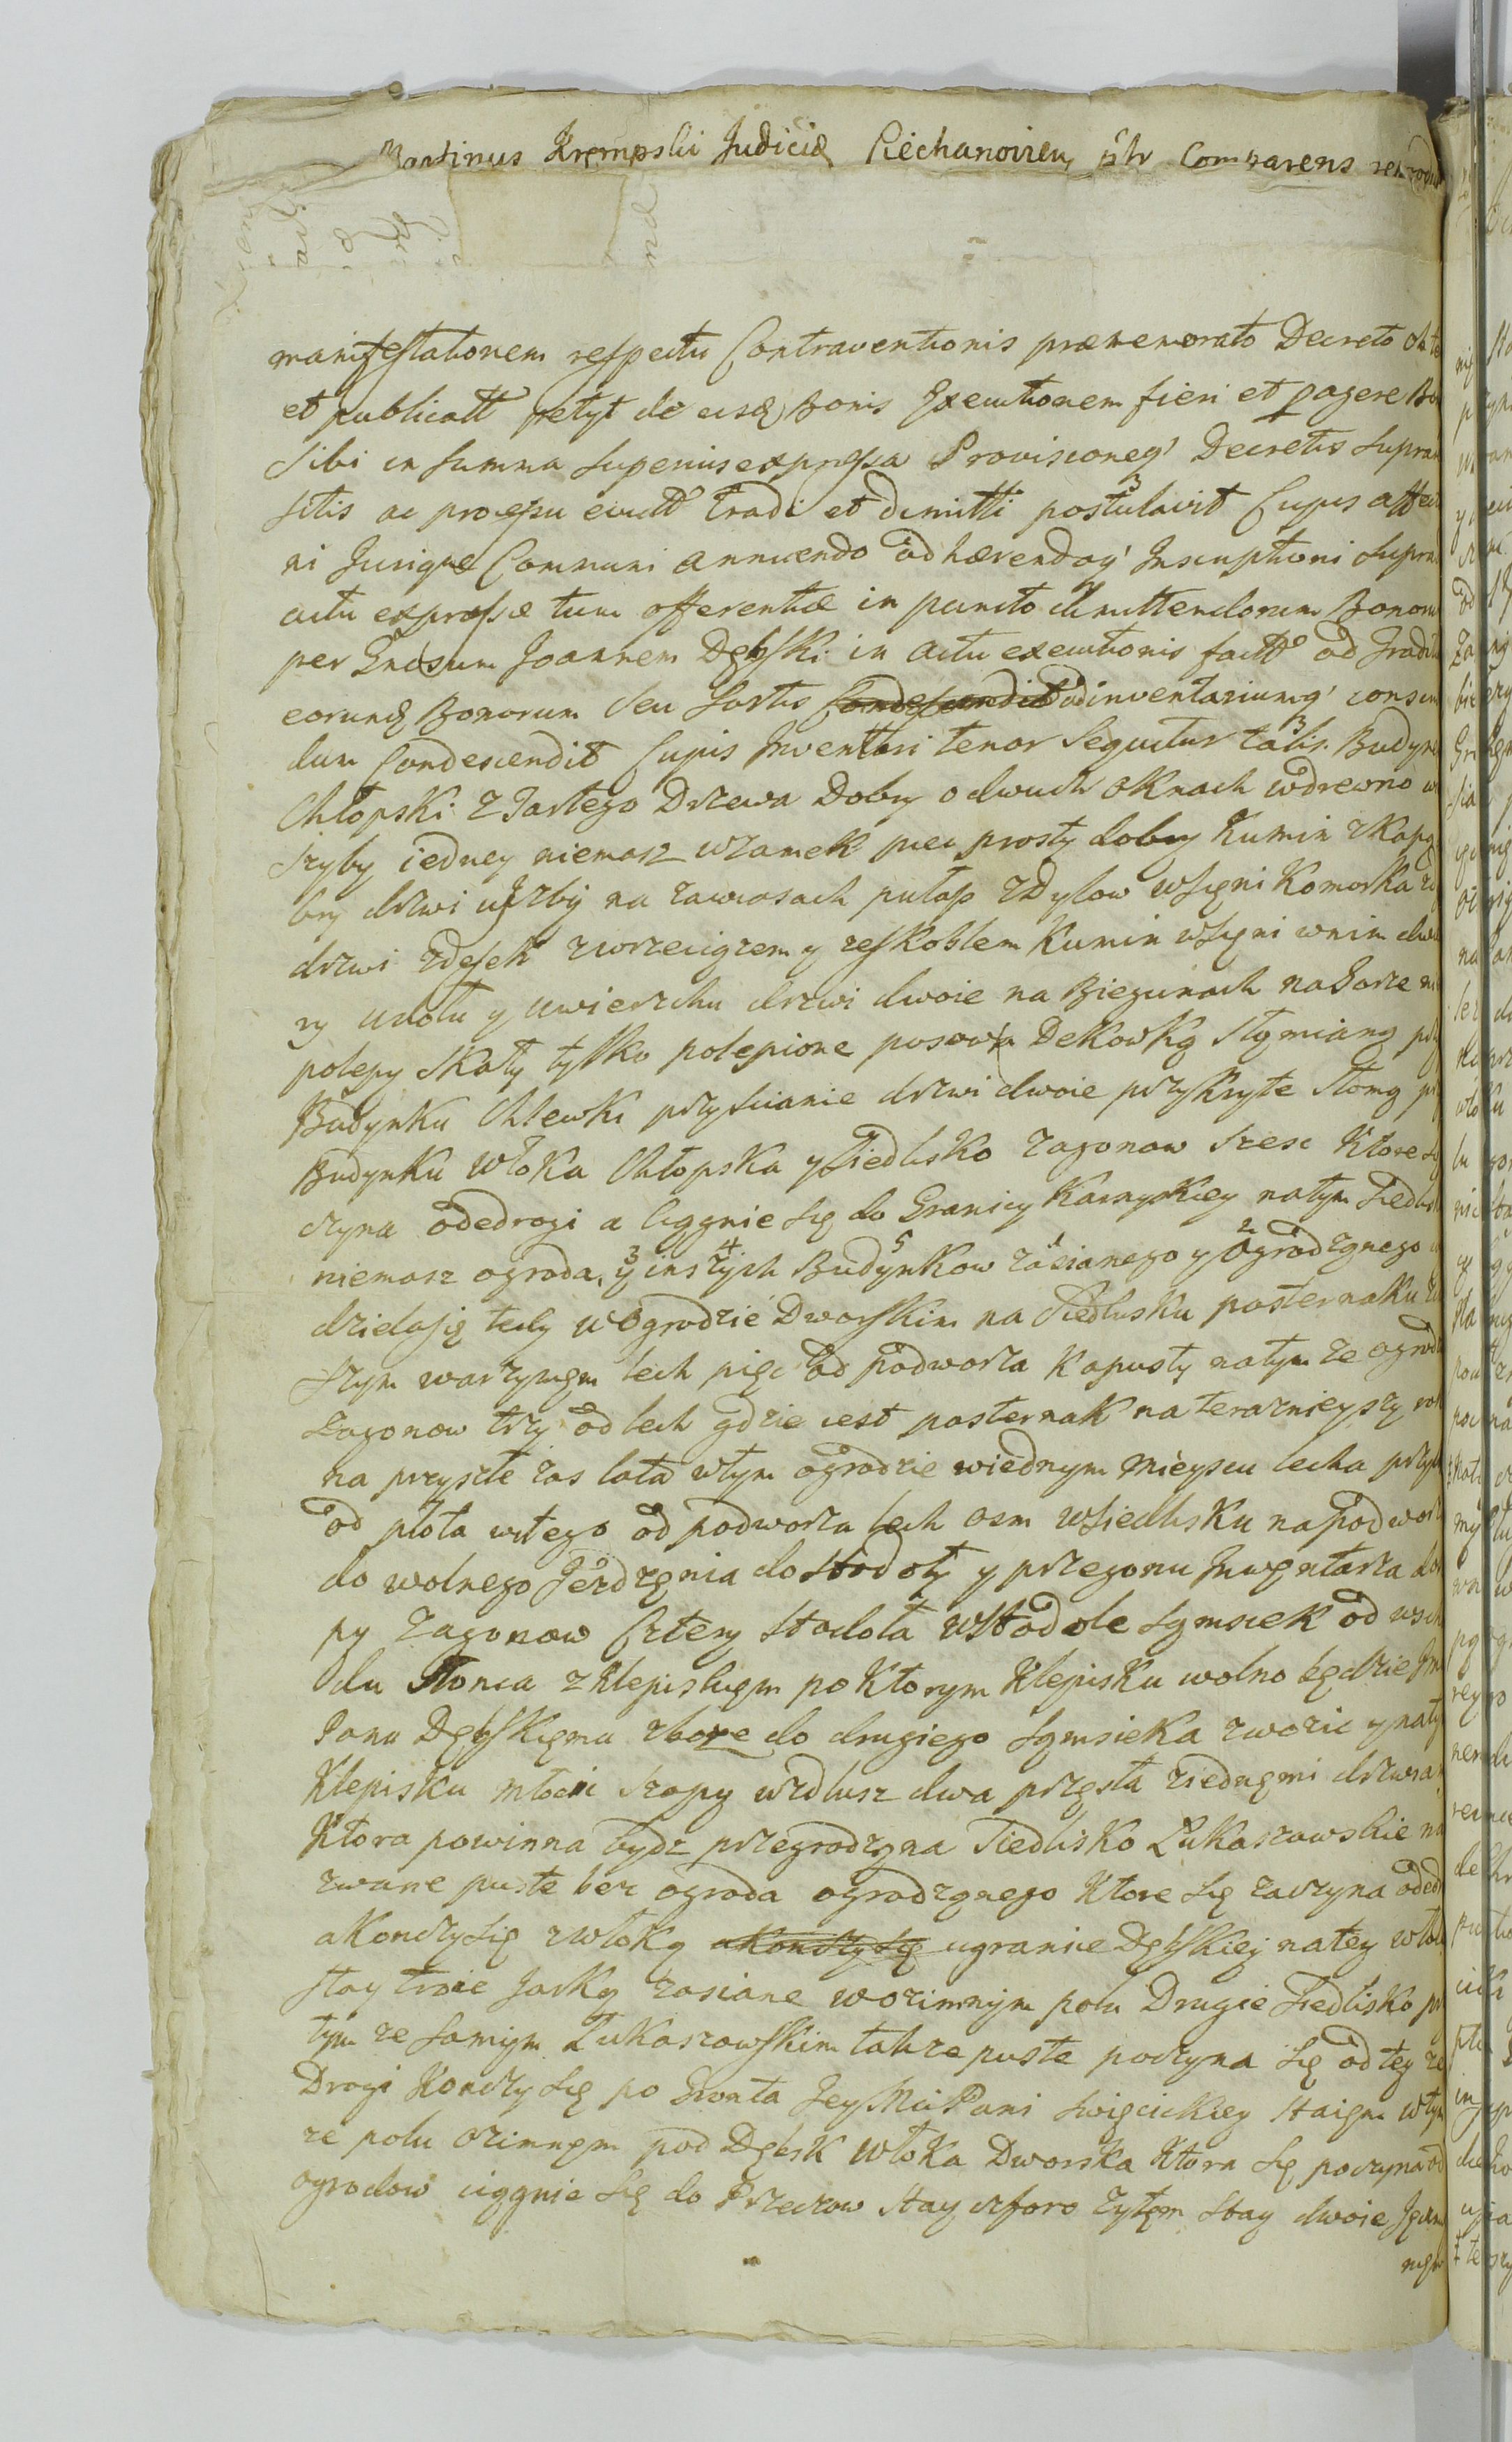 Martinus Krempski Judicia Ciechanovien ptr Comparens
manifestationem respectu Contraventionis præmemorato Decreto
et publicatt petyt de eisd Bonis Executionem fieri et pagere
Sibi in Summa Superius expressa Provisioneq Decretis Supra
sitis ac processu evictt Tradi et dimitti postulavit Cujus
ni Jurique Communi annuendo adhærendoq Inscriptioni Supra
actu expressæ tum offerentiæ in puncto dimittendorum Bonorum
per Gnosum Joannem Dębski in actu executionis factt ad
eorund Bonorum Seu Sortis Condescendit ad inventariumq
dum Condescendit Cujus Inventari tenor Sequitur talis. Budynek
Chłopski z Tartego Drzewa Doby o dwuch oknach wdrewno
Szyby iedney niemasz wzamek piec prosty dobry Kumin zKapą
bry drzwi uIzby na zawiasach pułap zDylow wSięni Komorka
drzwi zdesek zwrzeciązem y zeskoblem Kumin wSięni wnim
ry udołu y uwierzchu drzwi dwoie na Biegunach naGorze
polepy Skały tylko polepione posowa Dekowką Słomianą
Budynku Chlewki przyscianie drzwi dwoie przykryte Słomą
Budynku włoka Chłopska y Siedlisko zagonow Szesc Ktore
czyna odedrogi a ciągnie Się do Granicy Karnyskiey natym
niemasz ogroda, y inszych Budynkow zasianego y Ogrodzonego
dzielaję tedy wOgrodzie Dworskim na Siedlisku pasternaku
Szym warzywem lech pięc od podworza Kapusty natym ze
zagonow trzy od lech gdzie iest pasternak na terazniejszy rok
na przyszłe zas lata wtym ogrodzie wiednym mieyscu lecha
od płota wtego od podworza lech osm wSiedlisku napodworzu
do wolnego Jezdzęnia doStodoły y przegonu Inwętarza
py zagonow Cztery Stodoła wStodole Sąmsiek od
du Słonca zKlepiskiem po Ktorym Klepisku wolno będzie
Panu Dębskięmu zboze do drugiego Sąmsieka zwozic ynatym
Klepisku młocic Szopy wzdłusz dwa przęsła ziednęmi drzwiami
Ktora powinna bydz przegrodzona Siedlisko Łukaszowskie na
zwane puste bez ogroda ogrodzonego Ktore Się zaczyna
aKonczy Się zwłoką aKonczy Się ugranice Dębskiej natey
Stay troie Jarką zasiane wozimnym polu Drugie Siedlisko
tym ze Samym Łukaszowskim takze puste poczyna Się od tey ze
Drogi Konczy Się po Gronta Jey Mci Pani Swięcickiey Staiem wtym
ze polu ozimnęm pod Dębsk włoka Dworska Ktora Się poczyna od
ogrodow ciągnie Się do Przeczow Stay czforo zytęm Stay dwoie